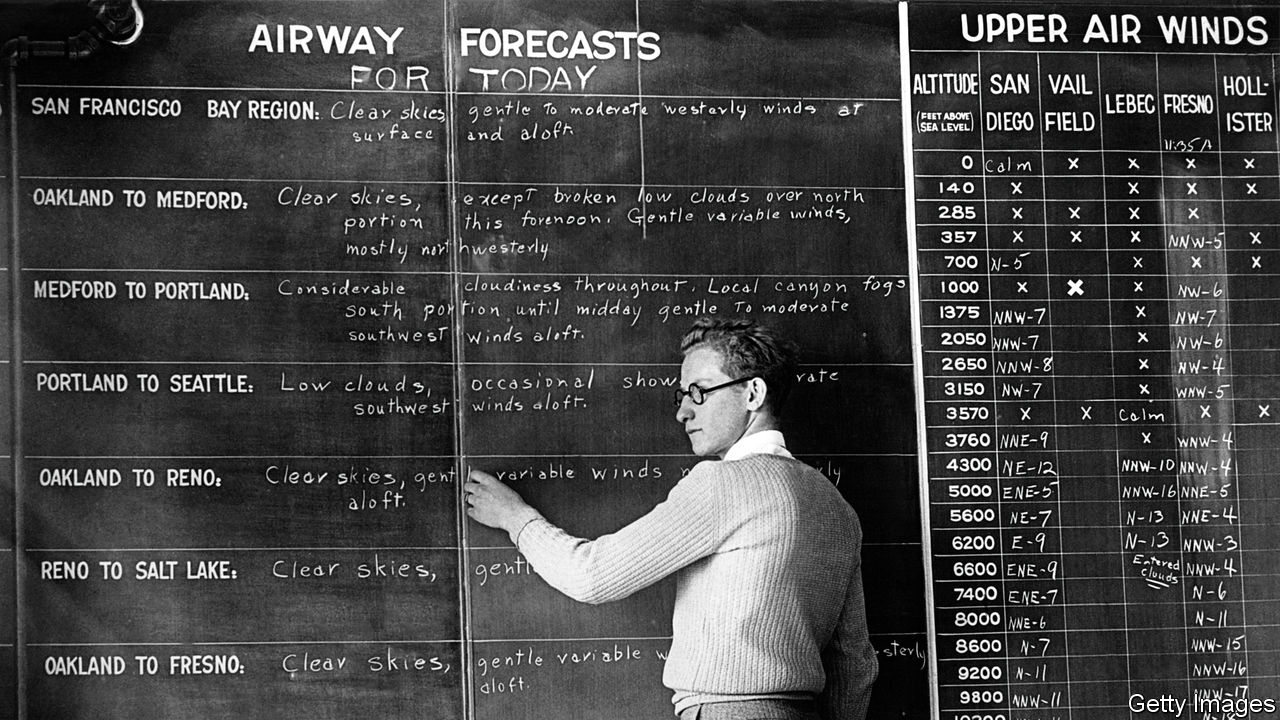 AIRWAY FORECASTS
FOR TODAY
SAN FRANCISCO BAY REGION: Clear skies, gentle to moderate westerly winds at
surface and aloft.
OAKLAND TO MEDFORD: Clear skies, except broken low clouds over north
portion this forenoon. Gentle variable winds,
mostly northwesterly
MEDFORD TO PORTLAND: Considerable cloudiness throughout. Local canyon fogs
south portion until midday gentle to moderate
southwest winds aloft.
PORTLAND TO SEATTLE: Low clouds, occasional
southwest winds aloft.
OAKLAND TO RENO: Clear skies, variable winds
aloft.
RENO TO SALT LAKE: Clear skies,
OAKLAND TO FRESNO: Clear skies, gentle variable
aloft.
UPPER AIR WINDS
ALTITUDE SAN VAIL LEBEC FRESNO HOLL-
(FEET ABOVE SEA LEVEL) DIEGO FIELD ISTER
11:35A
0 Calm x x x x
140 x x x x
285 x x x x
357 x x x NNW-5 x
700 N-5 x x x
1000 x x x NW-6
1375 NNW-7 x NW-7
2050 NNW-7 x NW-6
2650 NNW-8 x NW-4
3150 NW-7 x WNW-5
3570 x x Calm x x
3760 NNE-9 x WNW-4
4300 NE-12 NNW-10 NNW-4
5000 ENE-5 NNW-16 NNE-5
5600 NE-7 N-13 NNE-4
6200 E-9 N-13 NNW-3
6600 ENE-9 Entered clouds NNW-4
7400 ENE-7 N-6
8000 NNE-6 N-11
8600 N-7 NNW-15
9200 N-11 NNW-16
9800 NNW-11 NNW-17
Getty Images